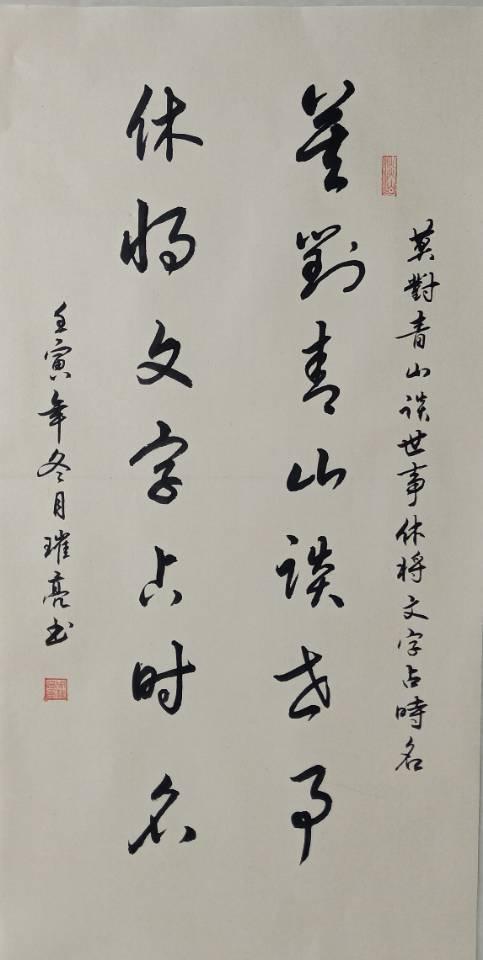 莫對青山談世事休將文字占時名
莫對青山談世事
休將文字占时名
壬寅年冬月璀亮书